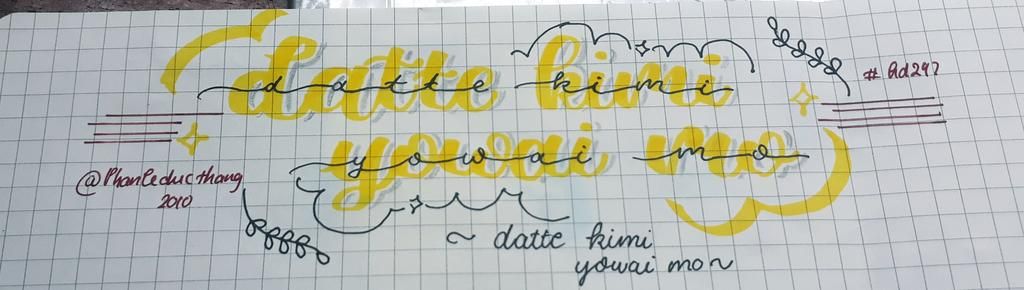 datte kimi
datte kimi
#Gd247
yowai mo
yowai mo
@Phanleducthang
2010
~ datte kimi
yowai mo~